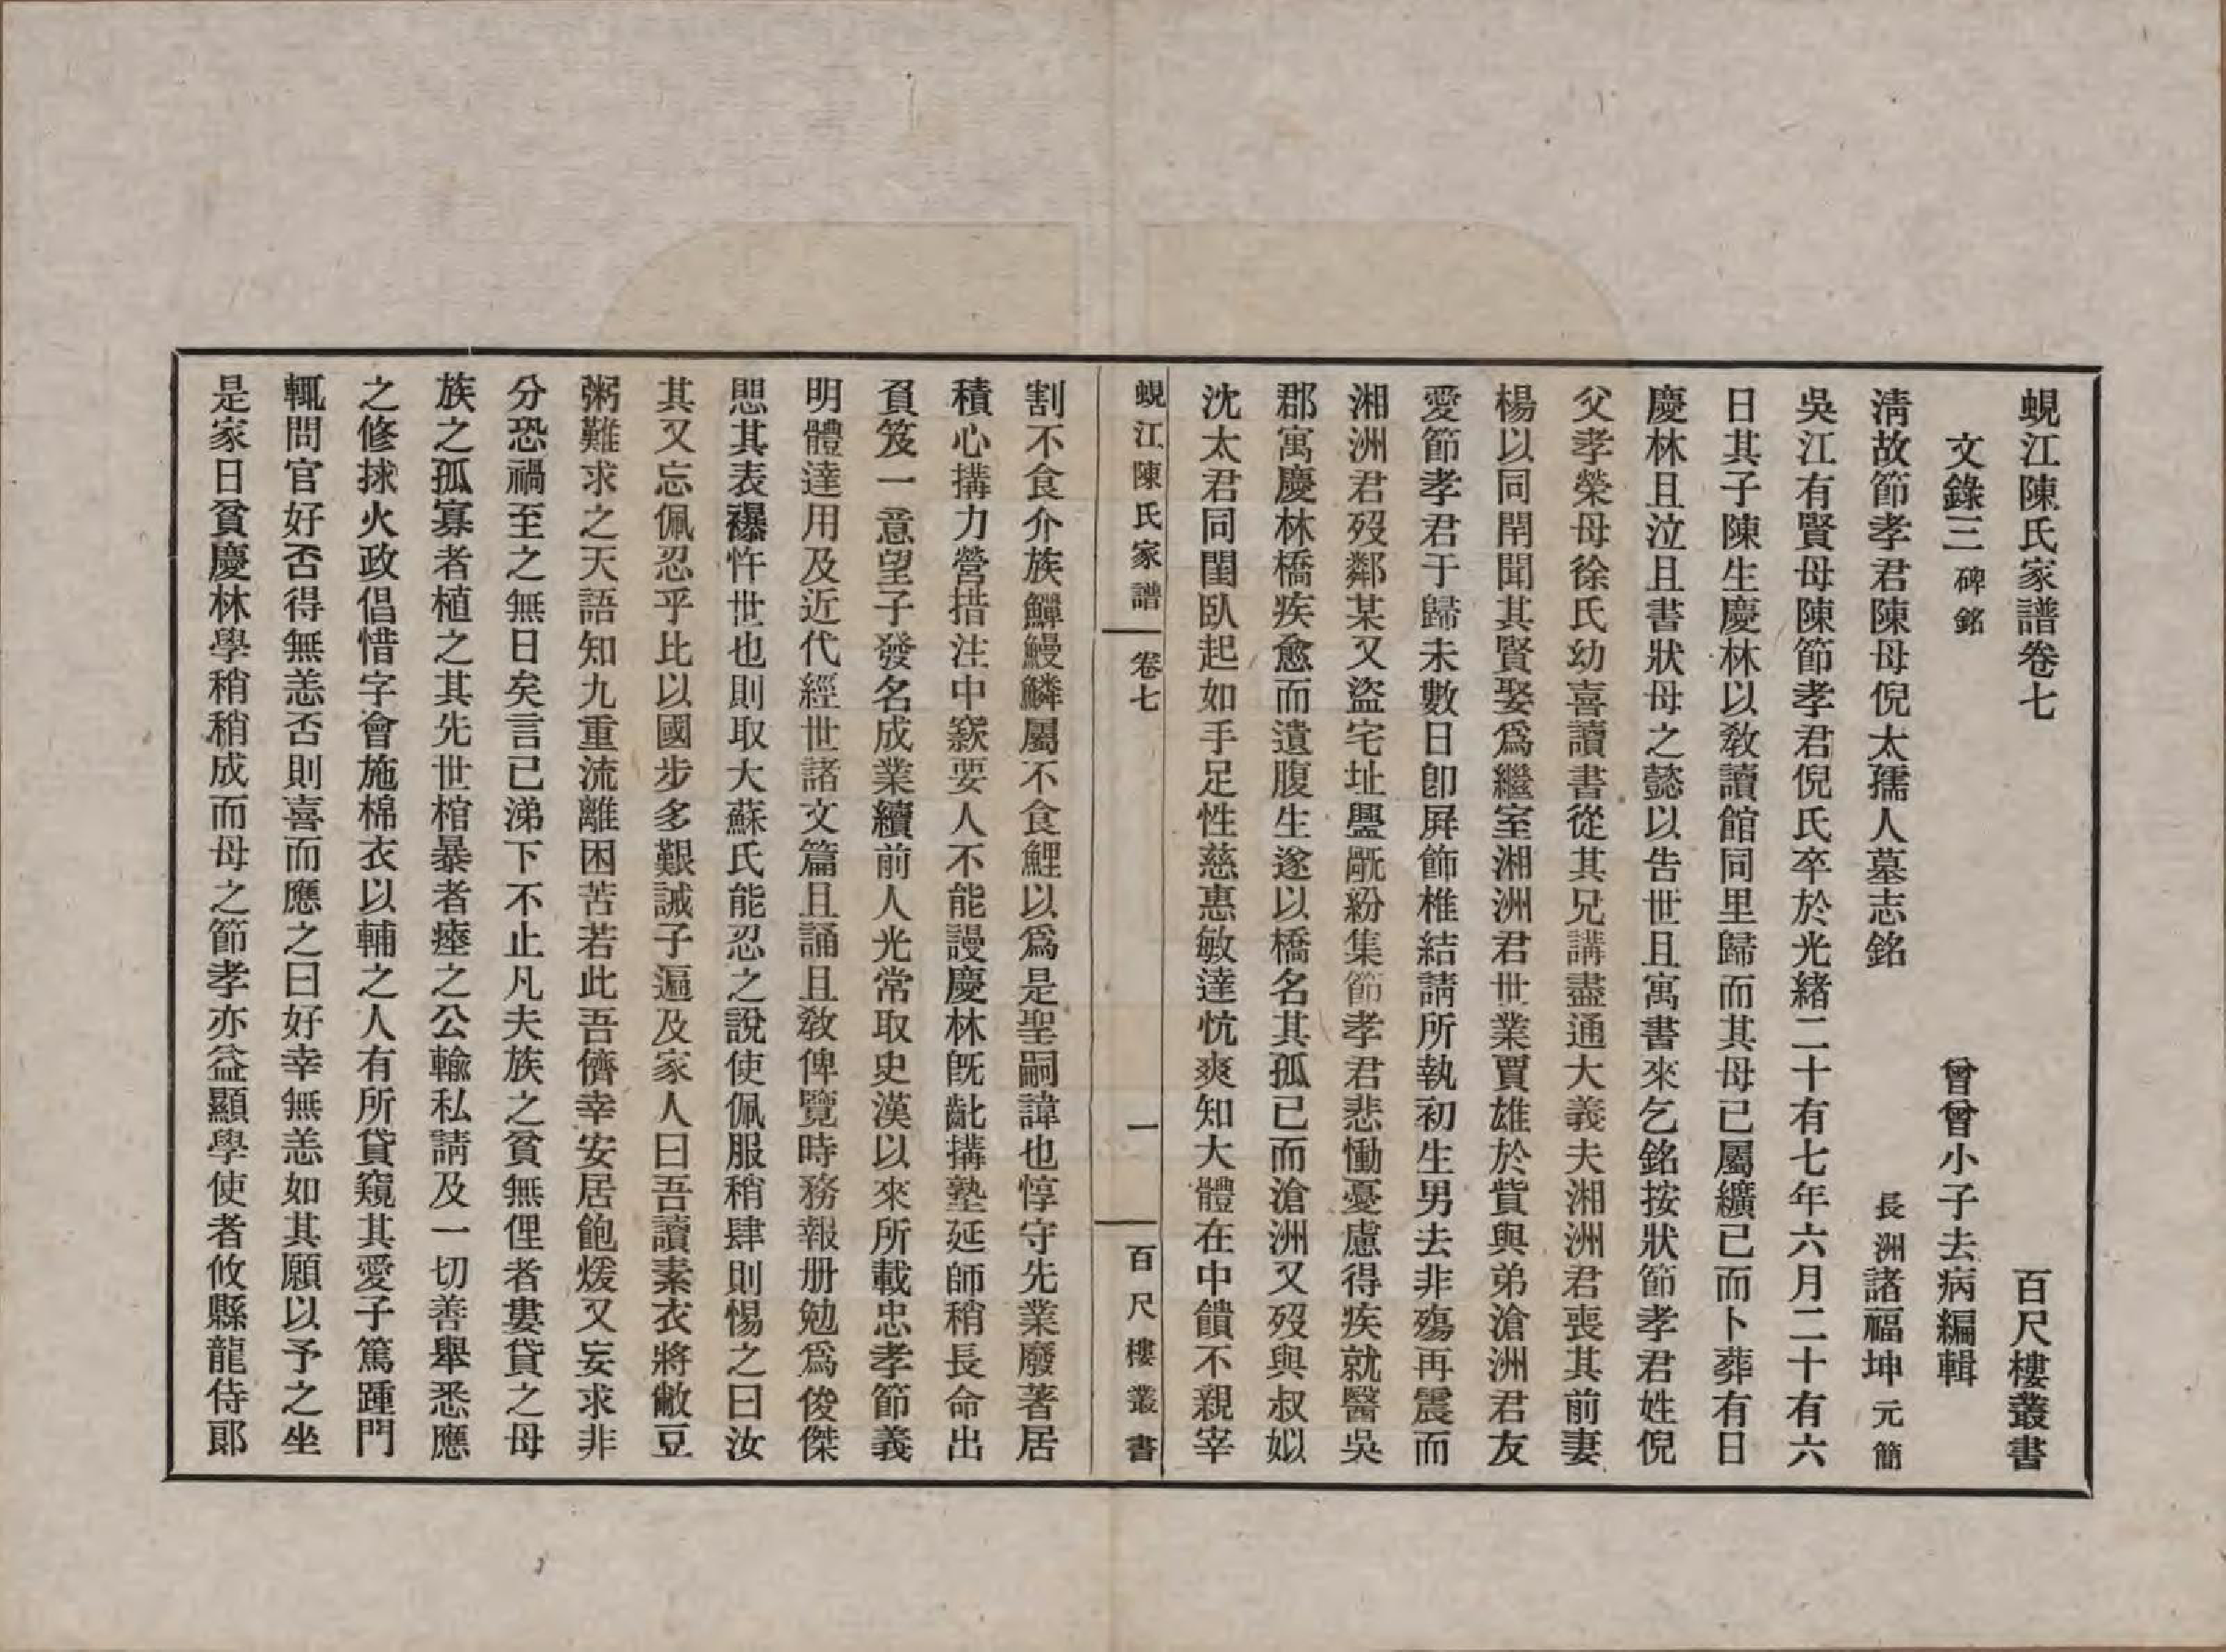 蜆江陳氏家譜卷七　百尺樓叢書
文錄三 碑銘　曾曾小子去病編輯
淸故節孝君陳母倪太孺人墓志銘　長洲諸福坤元簡
吳江有賢母陳節孝君倪氏卒於光緒二十有七年六月二十有六
日其子陳生慶林以敎讀館同里歸而其母已屬纊已而卜葬有日
慶林且泣且書狀母之懿以告世且寓書來乞銘按狀節孝君姓倪
父孝榮母徐氏幼喜讀書從其兄講盡通大義夫湘洲君喪其前妻
楊以同閈聞其賢娶爲繼室湘洲君世業賈雄於貲與弟滄洲君友
愛節孝君于歸未數日卽屛飾椎結請所執初生男去非殤再震而
湘洲君歿鄰某又盜宅址釁郮紛集節孝君悲慟憂慮得疾就醫吳
郡寓慶林橋疾愈而遺腹生遂以橋名其孤已而滄洲又歿與叔姒
沈太君同閨臥起如手足性慈惠敏達忼爽知大體在中饋不親宰
蜆江陳氏家譜　卷七　一　百尺樓叢書
割不食介族鱓鰻鱗屬不食鯉以爲是聖嗣諱也惇守先業廢著居
積心搆力營措注中窾要人不能謾慶林旣齔搆塾延師稍長命出
負笈一意望子發名成業續前人光常取史漢以來所載忠孝節義
明體達用及近代經世諸文篇且誦且敎俾覽時務報册勉爲俊傑
思其表襮忤世也則取大蘇氏能忍之說使佩服稍肆則惕之曰汝
其又忘佩忍乎比以國步多艱誡子遍及家人曰吾讀素衣將敝豆
粥難求之天語知九重流離困苦若此吾儕幸安居飽煖又妄求非
分恐禍至之無日矣言已涕下不止凡夫族之貧無俚者婁貸之母
族之孤寡者植之其先世棺暴者瘞之公輸私請及一切善舉悉應
之修捄火政倡惜字會施棉衣以輔之人有所貸窺其愛子篤踵門
輒問官好否得無恙否則喜而應之曰好幸無恙如其願以予之坐
是家日貧慶林學稍稍成而母之節孝亦益顯學使者攸縣龍侍郞